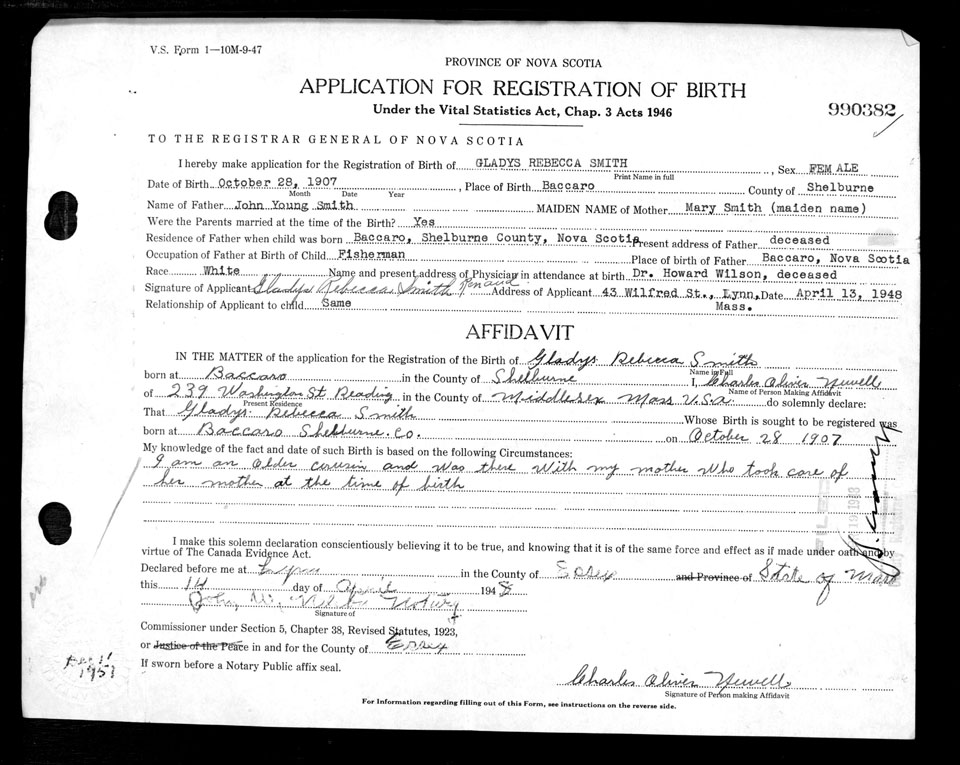 V.S. Form 1—10M-9-47
PROVINCE OF NOVA SCOTIA
APPLICATION FOR REGISTRATION OF BIRTH
Under the Vital Statistics Act, Chap. 3 Acts 1946
990382
TO THE REGISTRAR GENERAL OF NOVA SCOTIA
I hereby make application for the Registration of Birth of GLADYS REBECCA SMITH, Sex FEMALE
Print Name in full
Date of Birth October 28, 1907, Place of Birth Baccaro County of Shelburne
Month Date Year
Name of Father John Young Smith MAIDEN NAME of Mother Mary Smith (maiden name)
Were the Parents married at the time of the Birth? Yes
Residence of Father when child was born Baccaro, Shelburne County, Nova Scotia Present address of Father deceased
Occupation of Father at Birth of Child Fisherman Place of birth of Father Baccaro, Nova Scotia
Race White Name and present address of Physician in attendance at birth Dr. Howard Wilson, deceased
Signature of Applicant Gladys Rebecca Smith Renaud Address of Applicant 43 Wilfred St., Lynn, Date April 13, 1948
Relationship of Applicant to child Same Mass.
AFFIDAVIT
IN THE MATTER of the application for the Registration of the Birth of Gladys Rebecca Smith
Name in Full
born at Baccaro in the County of Shelburne I, Charles Oliver Newell
Name of Person Making Affidavit
of 239 Washington St Reading in the County of Middlesex Mass U.S.A. do solemnly declare:
Present Residence
That Gladys Rebecca Smith Whose Birth is sought to be registered was
born at Baccaro Shelburne. Co. on October 28 1907
My knowledge of the fact and date of such Birth is based on the following Circumstances:
I am an older cousin and was there with my mother who took care of
her mother at the time of birth
I make this solemn declaration conscientiously believing it to be true, and knowing that it is of the same force and effect as if made under oath and by
virtue of The Canada Evidence Act.
Declared before me at Lynn in the County of Essex and Province of State of Mass
this 14 day of April 1948
John Notary
Signature of
Commissioner under Section 5, Chapter 38, Revised Statutes, 1923,
or Justice of the Peace in and for the County of Essex
If sworn before a Notary Public affix seal.
Dec 11
1951
Charles Oliver Newell
Signature of Person making Affidavit
For Information regarding filling out of this Form, see instructions on the reverse side.